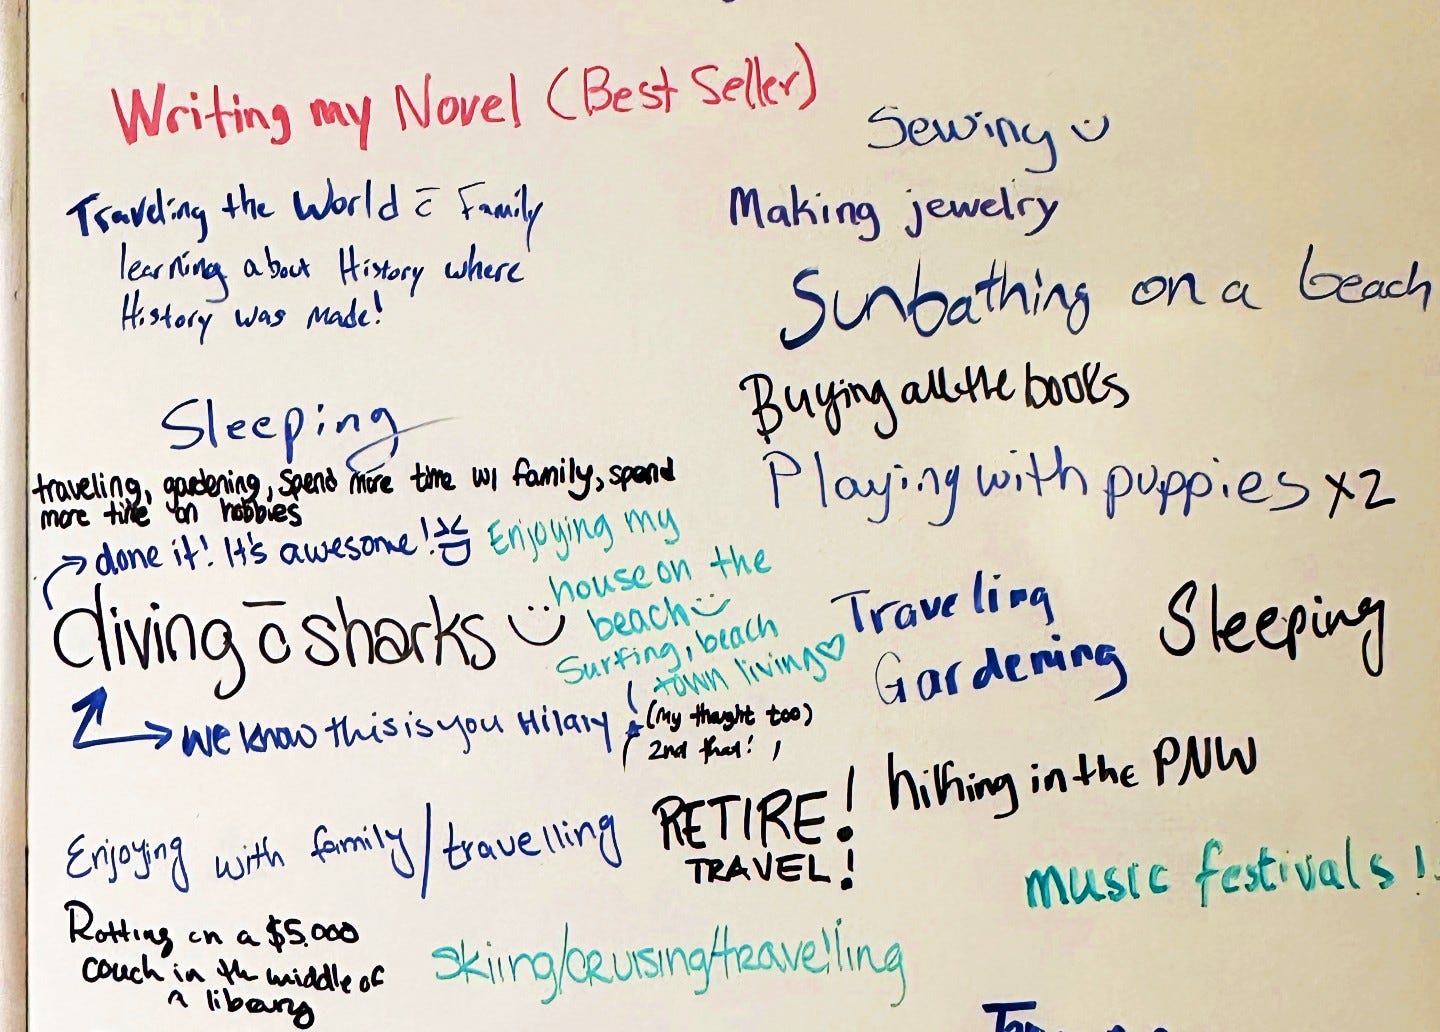 Writing my Novel (Best Seller)
Sewing
Traveling the World c̄ Family
learning about History where
History was made!
Making jewelry
Sunbathing on a beach
Buying all the books
Sleeping
Playing with puppies x2
traveling, gardening, spend more time w/ family, spend
more time on hobbies
→ done it! It's awesome!
Enjoying my
house on the
beach
Surfing, beach
town living ♡
diving c̄ sharks
→ we know this is you Hilary
(my thought too)
2nd that!
Traveling
Gardening
Sleeping
hiking in the PNW
Enjoying with family/travelling
RETIRE!
TRAVEL!
music festivals!
Rotting on a $5,000
couch in the middle of
^ library
skiing/cruising/travelling